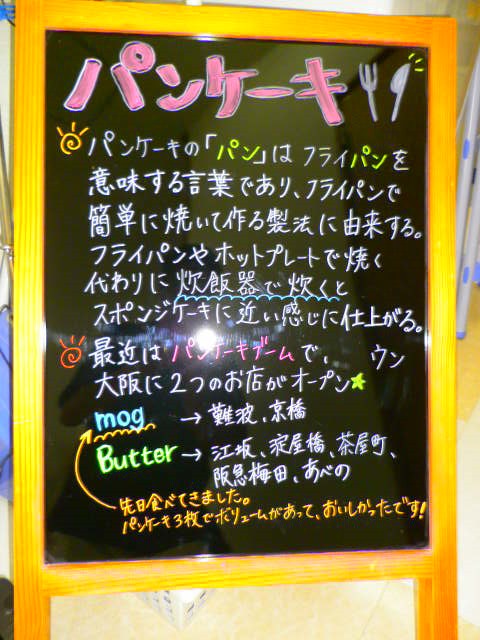 パンケーキ
パンケーキの「パン」は フライパンを
意味する言葉であり、フライパンで
簡単に焼いて作る製法に由来する。
フライパンやホットプレートで焼く
代わりに 炊飯器で 炊くと
スポンジケーキに近い感じに仕上がる。
最近は パンケーキブームで、 ウン
大阪に2つのお店がオープン★
mog → 難波、京橋
Butter → 江坂、淀屋橋、茶屋町、
阪急梅田、あべの
先日食べてきました。
パンケーキ3枚でボリュームがあって、おいしかったです!